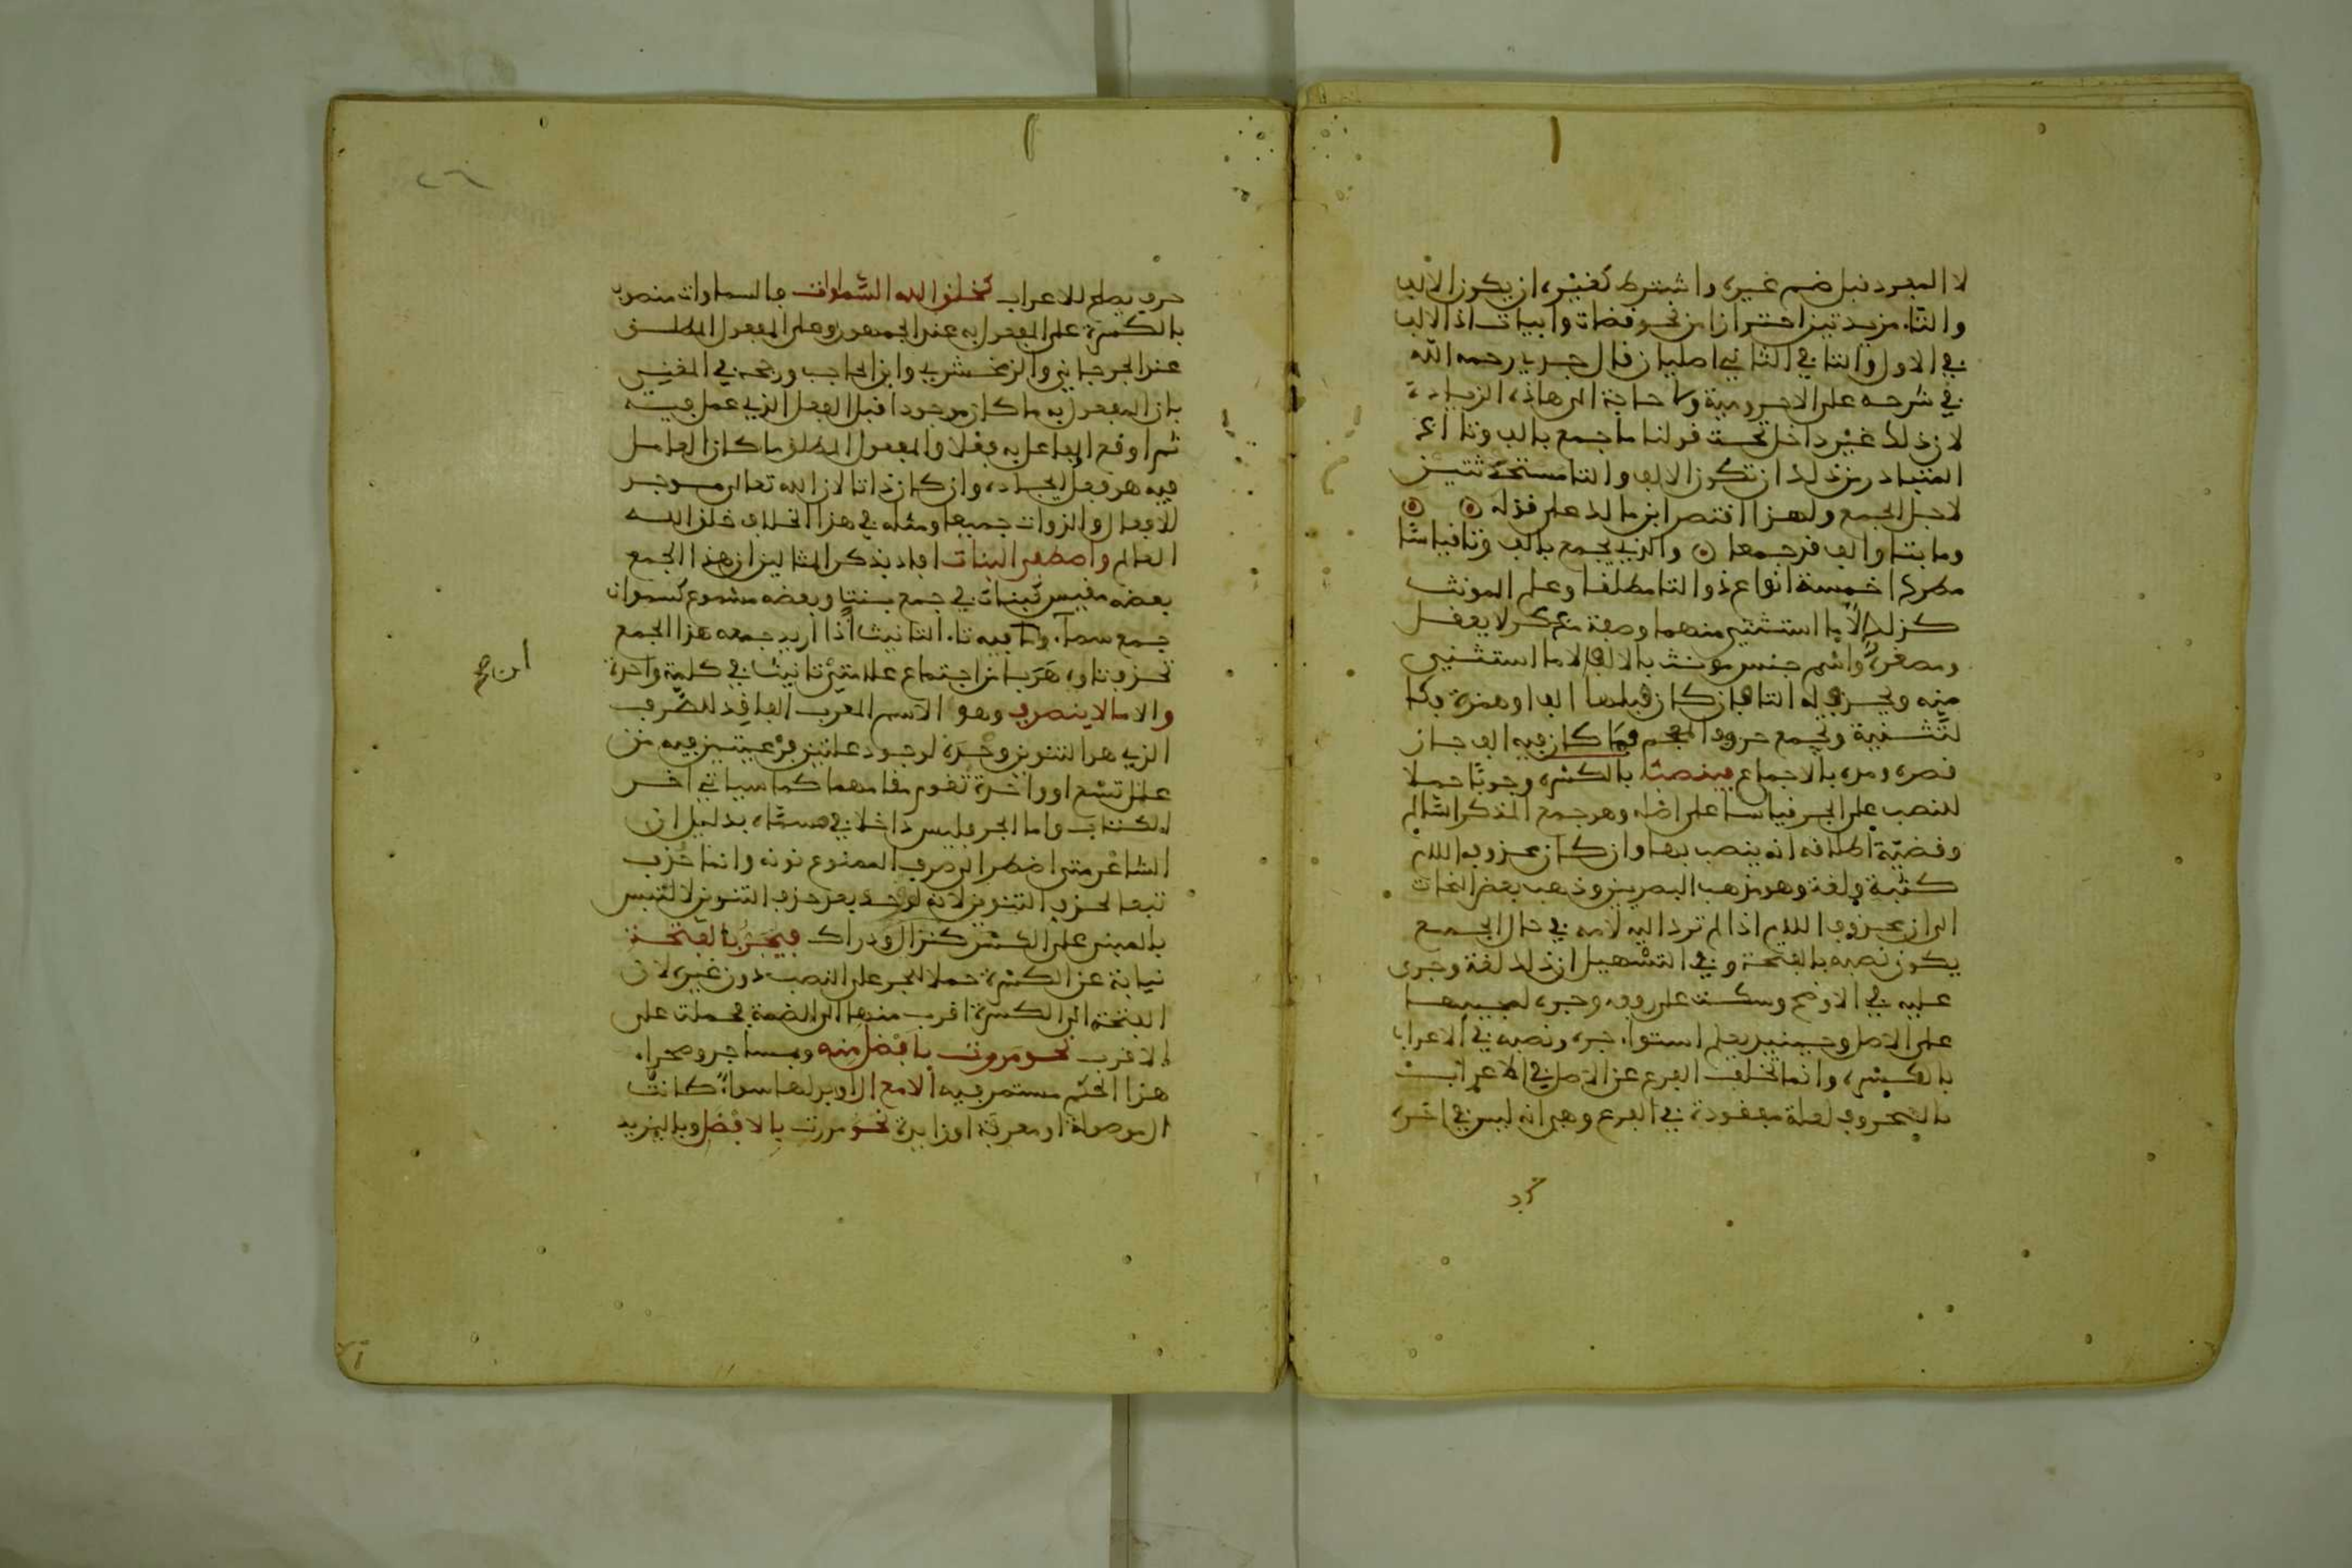 لا المفرد قبل ضم غيره واشترط كغيره ان يكون الالف
والتاء مزيدتين احترازا من نحو قضات وابيات اذ الالف
في الاول والتا في الثاني اصليان قال جدي رحمه الله
في شرحه على الاجرومية ولا حاجة الى هاذه الزيادة
لان ذلك غير داخل تحت قولنا ما جمع بالف وتا اذ
المتبادر من ذلك ان تكون الالف والتا مستحدثتين
لاجل الجمع ولهذا اقتصر ابن مالك على قوله
وما بتا والف قد جمعا والذي يجمع بالف وتا قياسًا
مطردا خمسة انواع ذو التا مطلقا وعلم المونث
كذلك الا ما استثني منهما وصفة مذكر لا يعقل
ومصغره واسم جنس مونث بالالف الا ما استثني
منه ويحذف له التا فان كان قبلها الف او همزة فكا
لتثنية وتجمع حروف المعجم فما كان فيه الف جاز
قصره ومده بالاجماع فينصب بالكسرة وجوبًا حملا
للنصب على الجر قياسا على اصله وهو جمع المذكر السالم
وقضيّة اطلاقه انه ينصب بها وان كان محذوف اللام
كثبة ولغة وهو مذهب البصريين وذهب بعض النحات
الى ان محذوف اللام اذا لم ترد اليه لامه في حال الجمع
يكون نصبه بالفتحة وفي التسهيل ان ذلك لغة وجرى
عليه في الاوضح وسكت على رفعه وجره لمجيئهما
على الاصل وحينئذ يعلم استواء جره ونصبه في الاعراب
بالكسرة وانما تخلف الفرع عن الاصل في الاعراب
بالحروف لعلة مفقودة في الفرع وهي انه ليس في اخره
حرف يصلح للاعراب كخلق الله السموات فالسماوات منصوب
بالكسرة على المفعول به عند الجمهور وعلى المفعول المطلق
عند الجرجاني والزمخشري وابن الحاجب ورجحه في المغني
بان المفعول به ما كان موجودا قبل الفعل الذي عمل فيه
ثم اوقع الفاعل به فعلا والمفعول المطلق ما كان العامل
فيه هو فعل ايجاده وان كان ذاتا لان الله تعالى موجد
للافعال والذوات جميعا ومثله في هذا الخلاف خلق الله
العالم واصطفى البنات افاد بذكر المثالين ان هذا الجمع
بعضه مقيس كبنات في جمع بنتٍ وبعضه مسموع كسموات
جمع سماء وما فيه تاء التانيث اذا اريد جمعه هذا الجمع
تحذف تاوه هَرَبا من اجتماع علامتي تانيث في كلمة واحدة
والا ما لا ينصرف وهو الاسم المعرب الفاقِد للصرف
الذي هو التنوين وحده لوجود علتين فرعيتين فيه من
علل تسع او واحدة تقوم مقامهما كما سياتي اخر
الكتاب واما الجر فليس داخلا في مسماه بدليل ان
الشاعر متى اضطر الى صرف الممنوع نونه وانما حُذف
تبعا لحذف التنوين لانه لو وجد بعد حذف التنوين لالتبس
بالمبني على الكسر كنزال ودراك فيجر بالفتحة
نيابة عن الكسرة حملا للجر على النصب دون غيره لان
الفتحة الى الكسرة اقرب منها الى الضمة فحملت على
الاقرب نحو مررت بافضل منه وبمساجد وصحراء
هذا الحكم مستمر فيه الا مع ال او بدلها سواء كانت
ال موصولة او معرفة او زايدة نحو مررت بالافضل وباليزيد